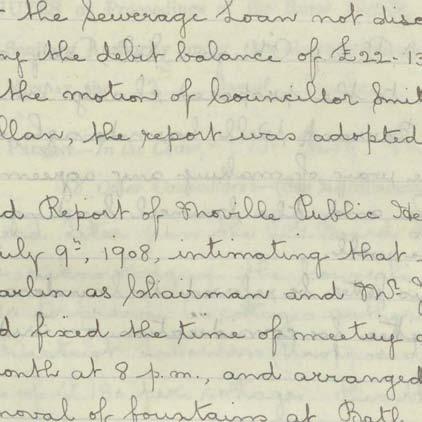 the Sewerage Loan not disc
ng the debit balance of £22-13
the motion of Councillor Smit
llan, the report was adopted
d Report of Moville Public He
uly 9th, 1908, intimating that
arlin as Chairman and Mr
d fixed the time of meeting
onth at 8 p.m., and arranged
noval of fountains at Bath